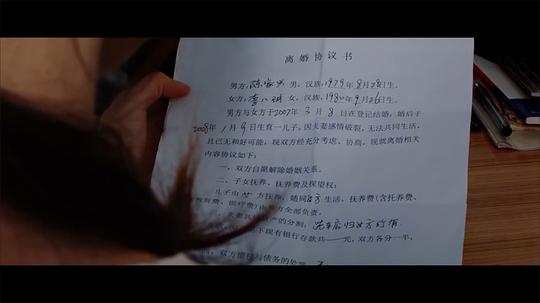 离婚协议书
男方:陈家兴 男,汉族,1979年8月28日生。
女方:李 女,汉族,1980年9月26日生。
男方与女方于2007年3月8日在登记结婚,婚后于
2008年1月9日生育一儿子,因夫妻感情破裂,无法共同生活,
且已无和好可能,现双方经充分考虑、协商,现就离婚相关
内容协议如下:
一、双方自愿解除婚姻关系。
二、子女抚养、抚养费及探望权:
儿子由 方抚养,随同 方生活,抚养费(含托养费、
教育费、医疗费)由 方全部负责。
产的分割: 归女方所有
下现有银行存款共 元,双方各分一半,
双方债权与债务的处理